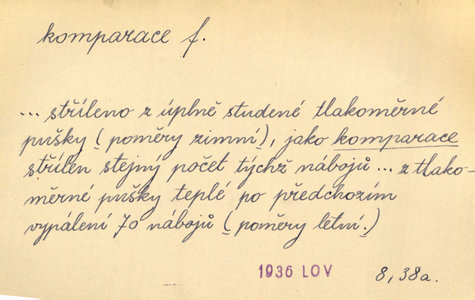 komparace f.
... stříleno z úplně studené tlakoměrné
pušky (poměry zimní), jako komparace
střílen stejný počet týchž nábojů ... z tlako-
měrné pušky teplé po předchozím
vypálení 70 nábojů (poměry letní.)
1936 LOV 8, 38a.